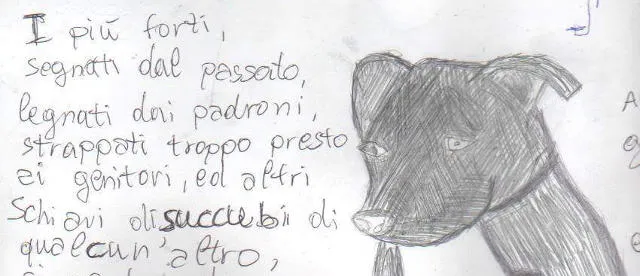 I più forti,
segnati dal passato,
legnati dai padroni,
strappati troppo presto
ai genitori, ed altri
schiavi di succubi di
qualcun'altro,